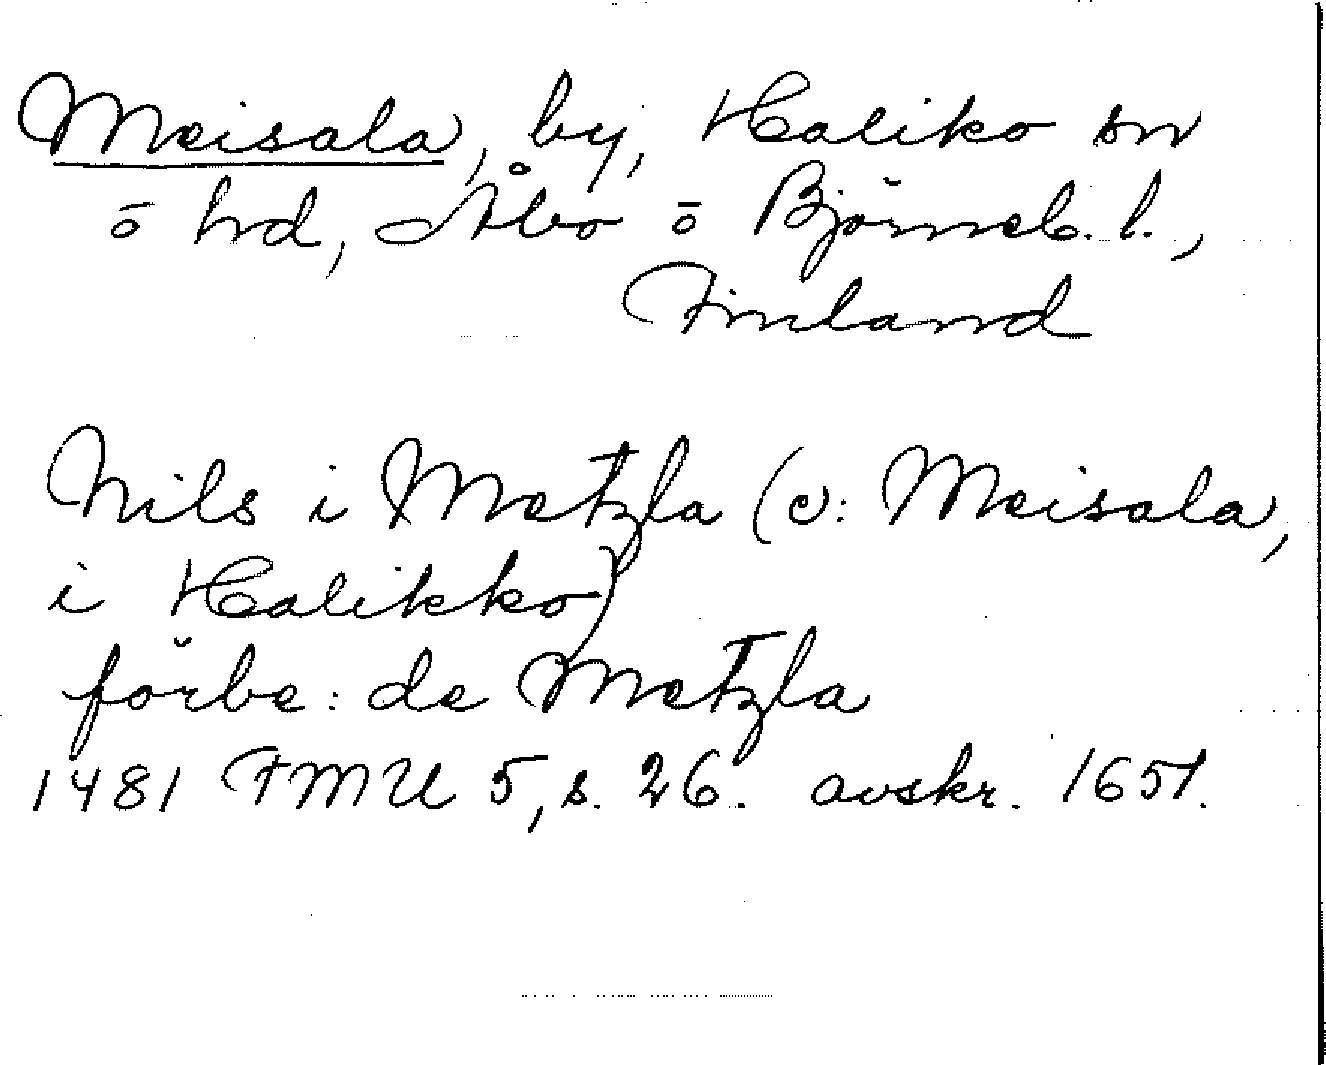 Meisala, by, Haliko sn
o hd, Åbo o Björneb. l.,
Finland
Nils i Metzla (ɔ: Meisala,
i Halikko)
förbe: de Metzla
1481 FMU 5, s. 26. avskr. 1651.